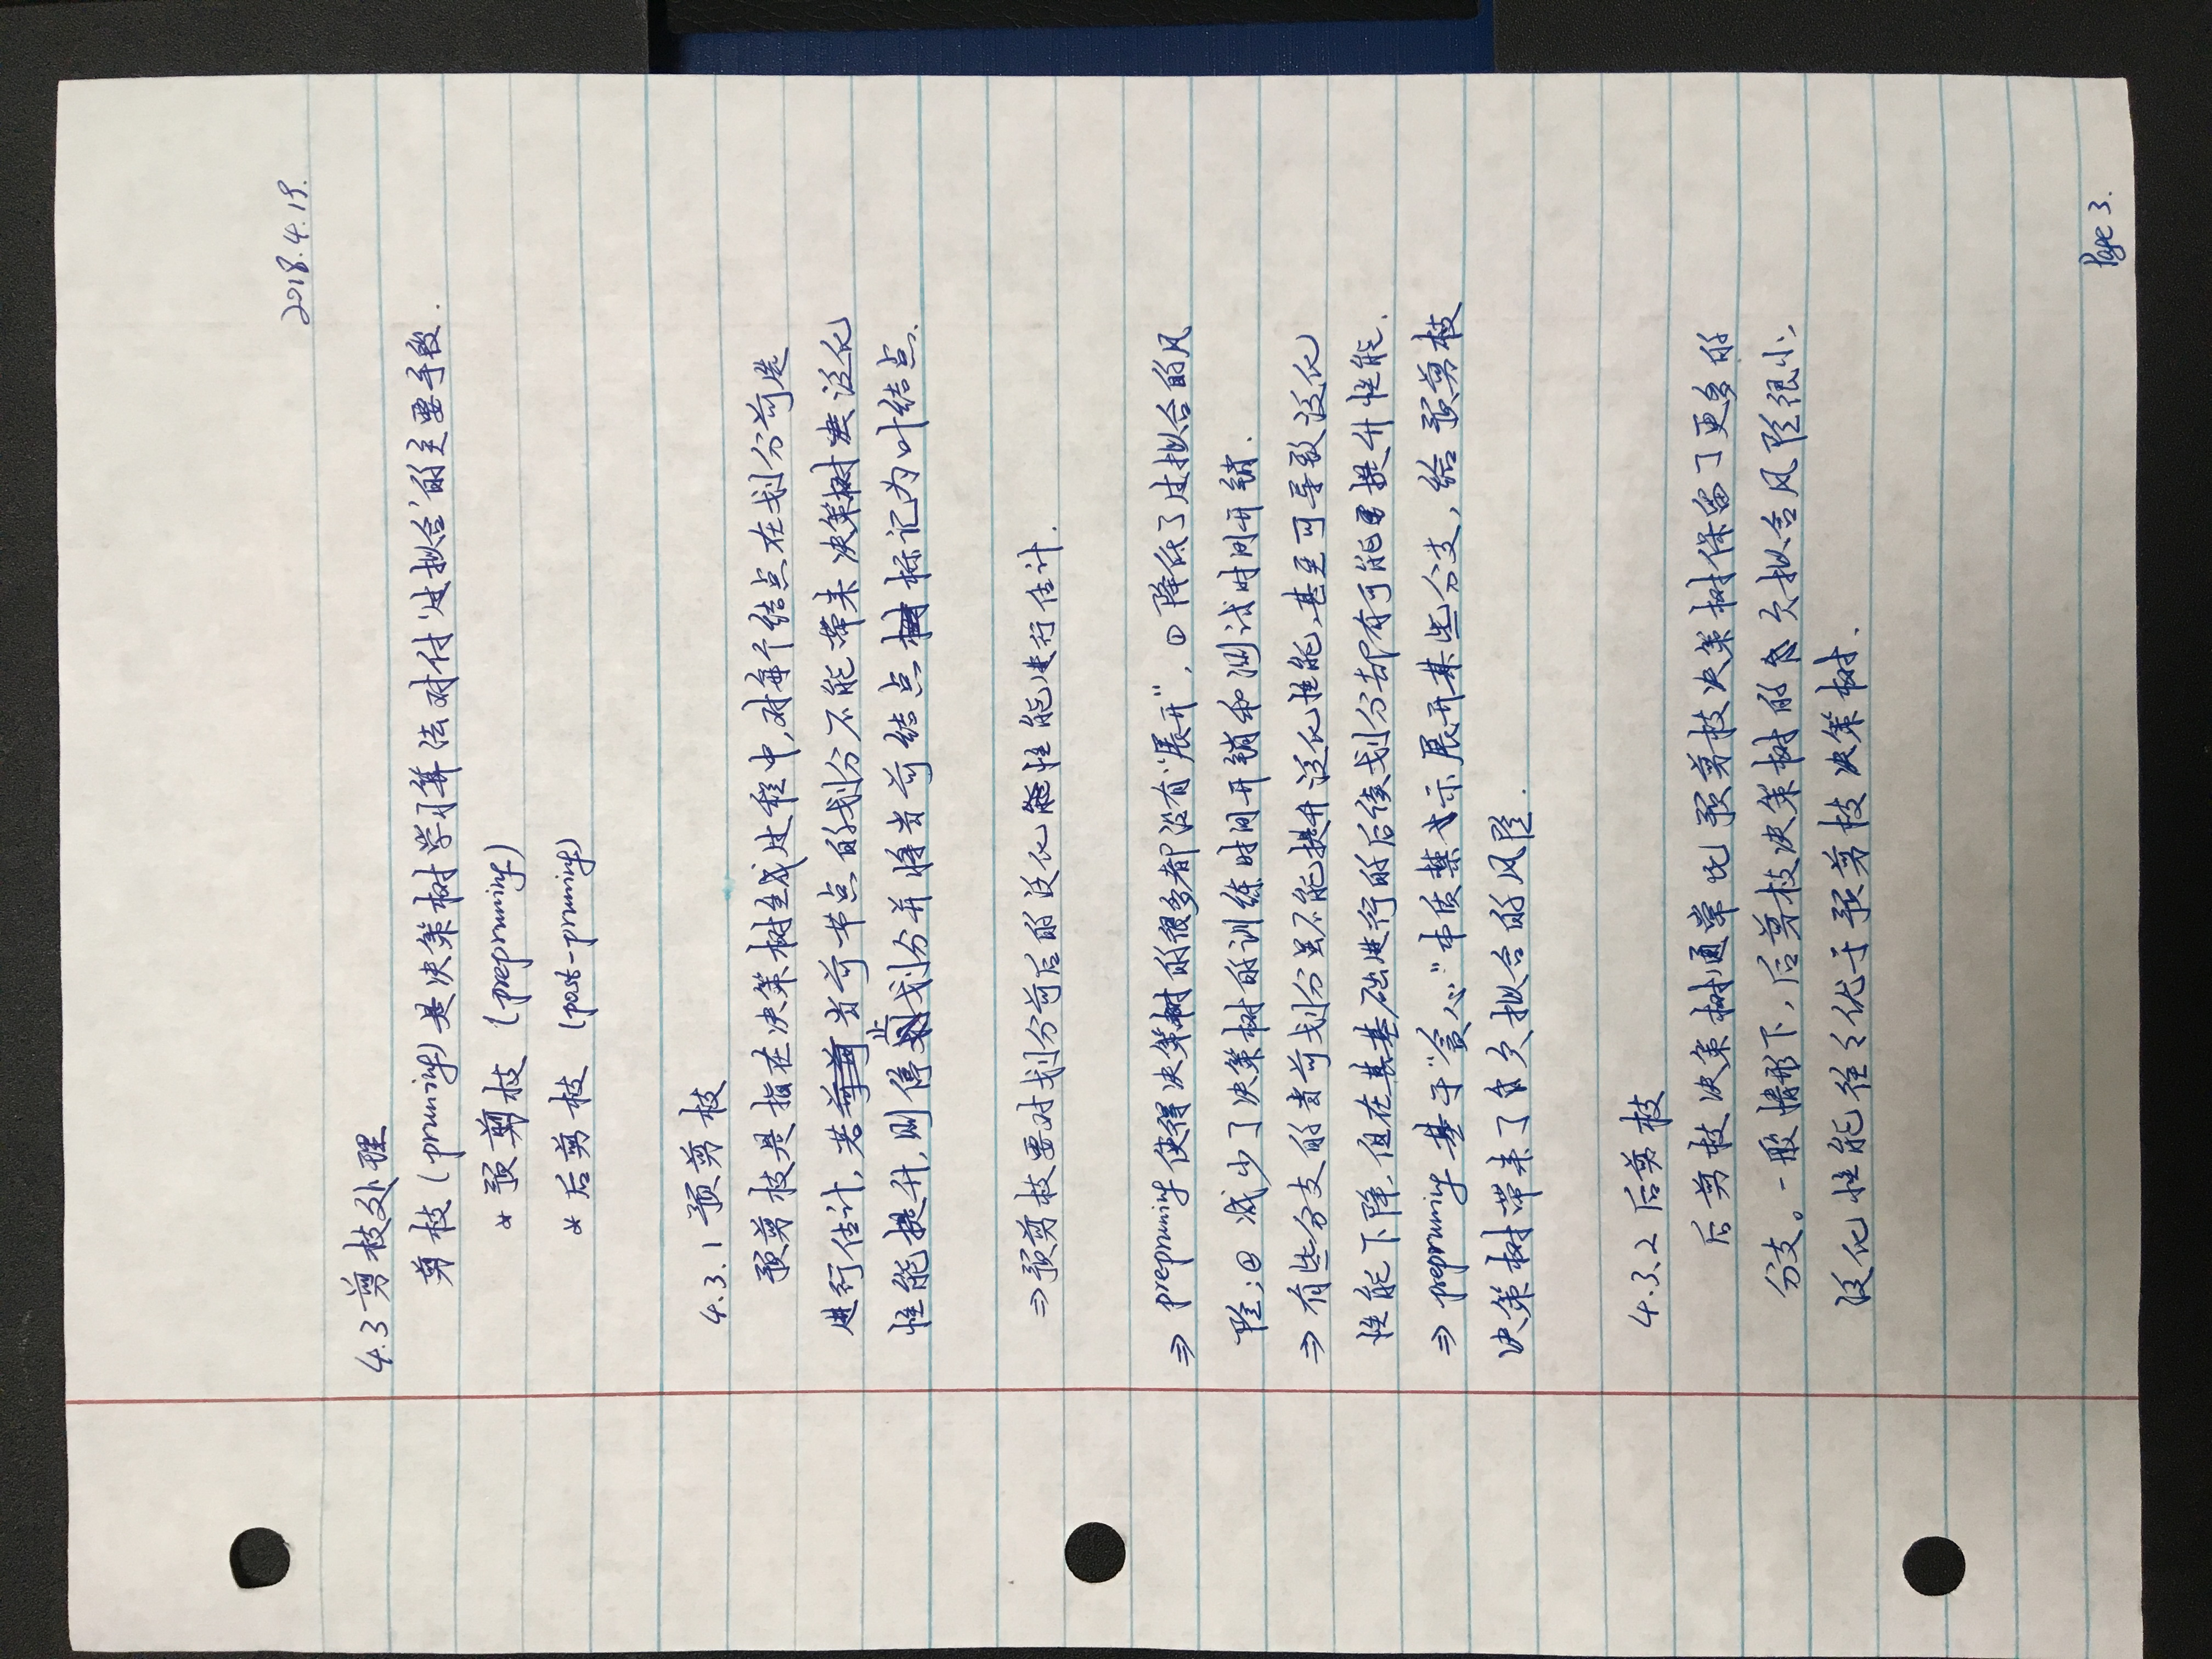 2018.4.19.
4.3 剪枝处理
剪枝 (pruning) 是决策树学习算法对付‘过拟合’的主要手段.
* 预剪枝 (prepruning)
* 后剪枝 (post-pruning)
4.3.1 预剪枝
预剪枝是指在决策树生成过程中,对每个结点在划分前先
进行估计,若当前节点的划分不能带来决策树泛化
性能提升,则停止划分并将当前结点标记为叶结点.
⇒预剪枝要对划分前后的泛化性能进行估计.
⇒ prepruning 使得决策树的很多都没有“展开”, ① 降低了过拟合的风
险; ② 减少了决策树的训练时间开销和测试时间开销.
⇒ 有些分支的当前划分虽不能提升泛化性能,甚至可导致泛化
性能下降,但在其基础进行的后续划分却有可能提升性能.
⇒ prepruning 基于“贪心”本质禁止展开某些分支, 给预剪枝
决策树带来了欠拟合的风险.
4.3.2 后剪枝
后剪枝决策树通常比预剪枝决策树保留了更多的
分支。一般情形下, 后剪枝决策树的欠拟合风险很小,
泛化性能往々优于预剪枝决策树.
Page 3.